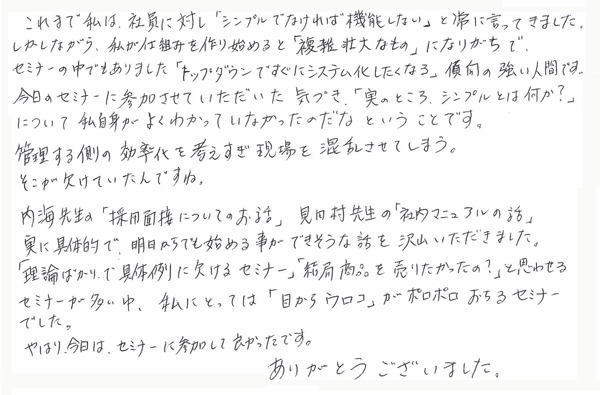 これまで私は、社員に対し「シンプルでなければ機能しない」と常に言ってきました。
しかしながら、私が仕組みを作り始めると「複雑壮大なもの」になりがちで、
セミナーの中でもありました「トップダウンですぐにシステム化したくなる」傾向の強い人間です。
今日のセミナーに参加させていただいた気づき、「実のところ、シンプルとは何か?」
について私自身がよくわかっていなかったのだな ということです。
管理する側の効率化を考えすぎ現場を混乱させてしまう。
そこが欠けていたんですね。
内海先生の「採用面接についてのお話」見田村先生の「社内マニュアルの話」
実に具体的で、明日からでも始める事ができそうな話を沢山いただきました。
「理論ばかりで具体例に欠けるセミナー」「結局商品を売りたかったの?」と思わせる
セミナーが多い中、私にとっては「目からウロコ」がポロポロおちるセミナー
でした。
やはり、今日は、セミナーに参加して良かったです。
ありがとうございました。